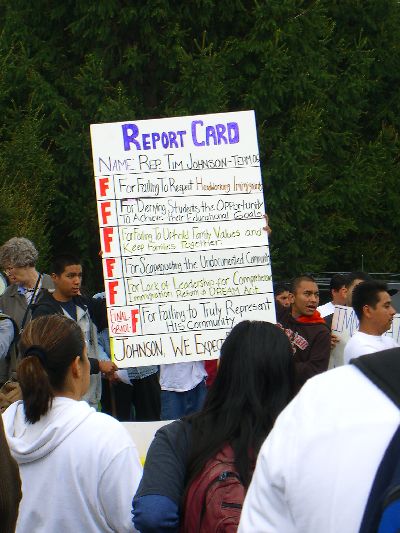 REPORT CARD
NAME: REP. TIM JOHNSON - TERM 06
F FOR FAILING TO RESPECT HARDWORKING IMMIGRANTS
F FOR DENYING STUDENTS THE OPPORTUNITY
TO ACHIEVE THEIR EDUCATIONAL GOALS
F FOR FAILING TO UPHOLD FAMILY VALUES AND
KEEP FAMILIES TOGETHER
F FOR SCAPEGOATING THE UNDOCUMENTED COMMUNITY
F FOR LACK OF LEADERSHIP FOR COMPREHENSIVE
IMMIGRATION REFORM & DREAM ACT
FINAL GRADE: F FOR FAILING TO TRULY REPRESENT
HIS COMMUNITY
JOHNSON, WE EXPECT